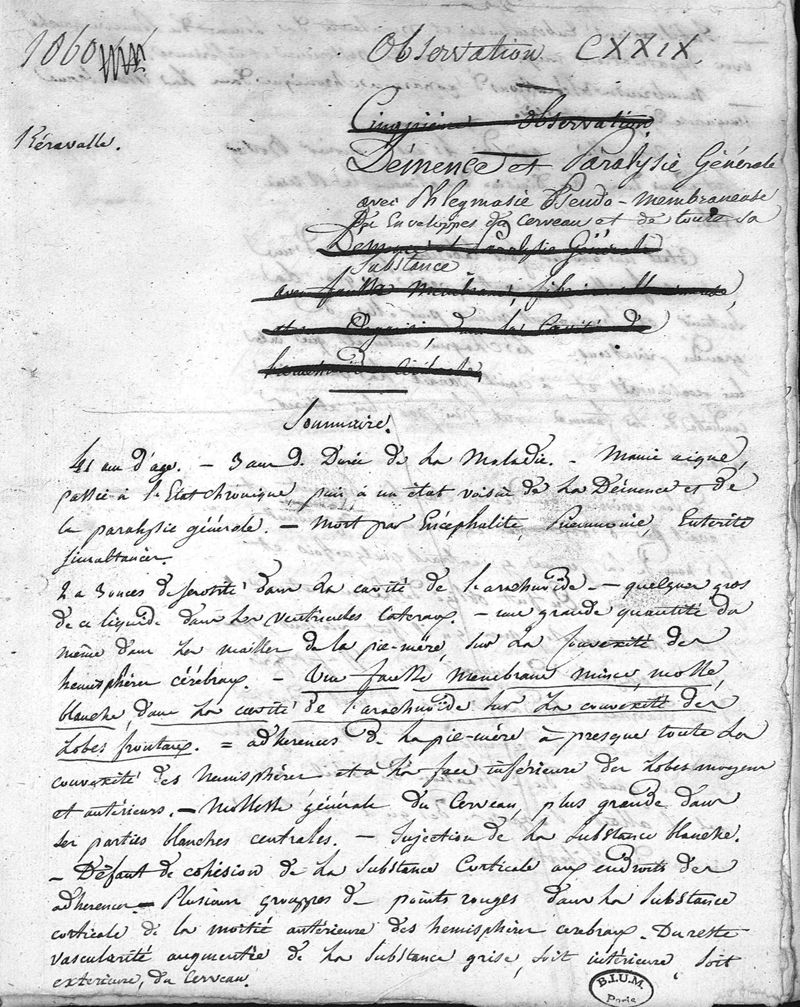 1060
Observation CXXIX.
Cinquième Observation
Kéravalle.
Démence et Paralysie Générale
avec Phlegmasie Pseudo-membraneuse
des Enveloppes du Cerveau et de toute sa
Démence et Paralysie Générale
Substance
avec fausse membrane
dans la cavité de
Sommaire.
41 ans d'age. — 3 ans de Durée de la Maladie. — Manie aiguë,
passée à l'Etat chronique, puis à un état voisin de la Démence et de
la paralysie générale. — Mort par Encéphalite, Pneumonie, Entérite
simultanées.
2 a 3 onces de serosité dans la cavité de l'arachnoïde. — quelques gros
de ce liquide dans les ventricules lateraux. — une grande quantité du
même dans les mailles de la pie-mère, sur la convexité des
hemisphères cérébraux. — Une fausse membrane mince, molle,
blanche, dans la cavité de l'arachnoïde sur la convexité des
Lobes frontaux. = adherences de la pie-mère à presque toute la
convexité des hemisphères et à la face inférieure des Lobes moyens
et antérieurs. — Mollesse générale du Cerveau, plus grande dans
ses parties blanches centrales. — Injection de la substance blanche.
— Défaut de cohésion de la substance Corticale aux endroits des
adherences — Plusieurs grouppes de points rouges dans la substance
corticale de la moitié antérieure des hemisphères cerebraux. Du reste
vascularité augmentée de la substance grise, soit intérieure, soit
exterieure, du Cerveau.
B.I.U.M.
Paris